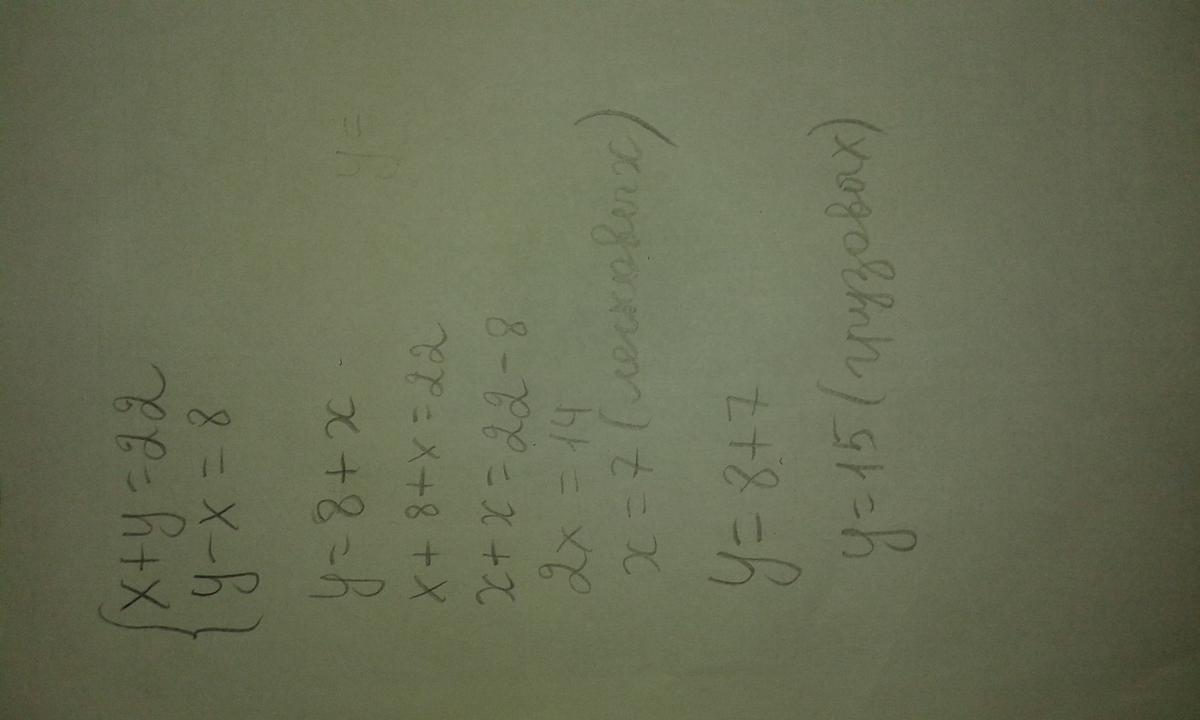 { x+y=22
y-x=8
y=
y=8+x
x+8+x=22
x+x=22-8
2x=14
x=7 (легковых)
y=8+7
y=15 (грузовых)